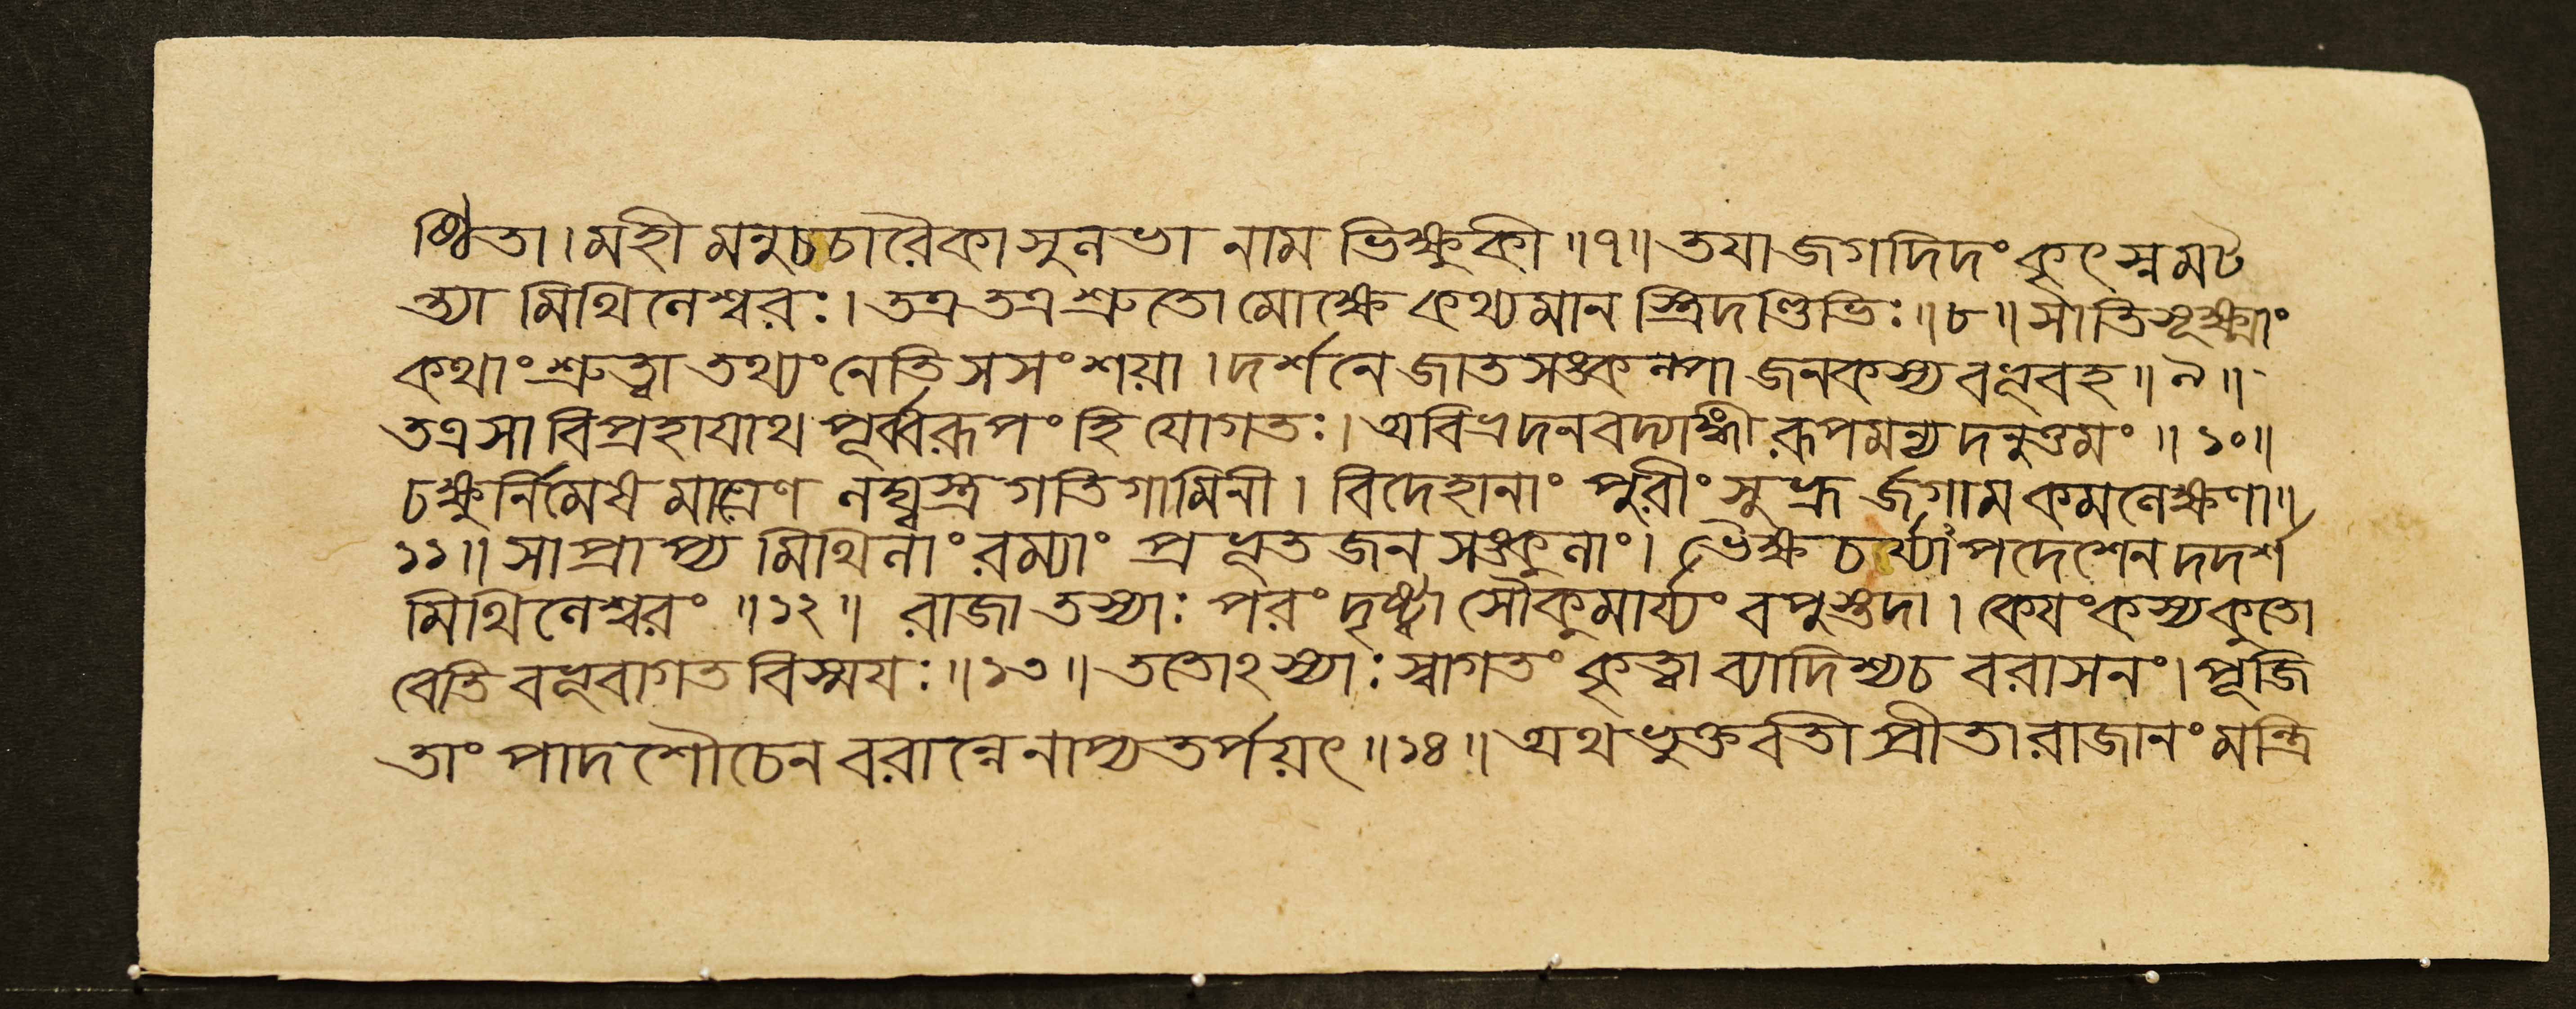 ষ্ঠিতা। মহী মনুচচারৈকা সুলভা নাম ভিক্ষুকী ॥৭॥ তযা জগদিদং কৃৎস্নমট
ন্ত্যা মিথিলেশ্বরঃ। তত্র তত্র শ্রুতো মোক্ষে কথ্যমান স্ত্রিদণ্ডিভিঃ ॥৮॥ সাতিসূক্ষ্মাং
কথাং শ্রুত্বা তথ্যং নেতি সসংশয়া। দর্শনে জাতসঙ্কল্পা জনকস্য বভূবহ ॥৯॥
তত্র সা বিপ্রহাযাথ পূর্ব্বরূপং হি যোগতঃ। অবিভ্রদনবদ্যাঙ্গী রূপমন্যদনুত্তমং ॥১০॥
চক্ষুর্নিমেষ মাত্রেণ লঘ্বস্ত্র গতিগামিনী। বিদেহানাং পুরীং সুভ্রূর্জগাম কমলেক্ষণা॥
১১॥ সা প্রাপ্য মিথিলাং রম্যাং প্রভূত জন সঙ্কুলাং। ভৈক্ষচর্য্যাপদেশেন দদর্শ
মিথিলেশ্বরং ॥১২॥ রাজা তস্যাঃ পরং দৃষ্ট্বা সৌকুমার্য্যং বপুস্তদা। কেযং কস্য কুতো
বেতি বভূবাগত বিস্ময়ঃ ॥১৩॥ ততোঽস্যাঃ স্বাগতং কৃত্বা ব্যাদিশ্যচ বরাসনং। পূজি
তাং পাদশৌচেন বরান্নেনাপ্যতর্পয়ৎ ॥১৪॥ অথ ভুক্তবতী প্রীতা রাজানং মন্ত্রি